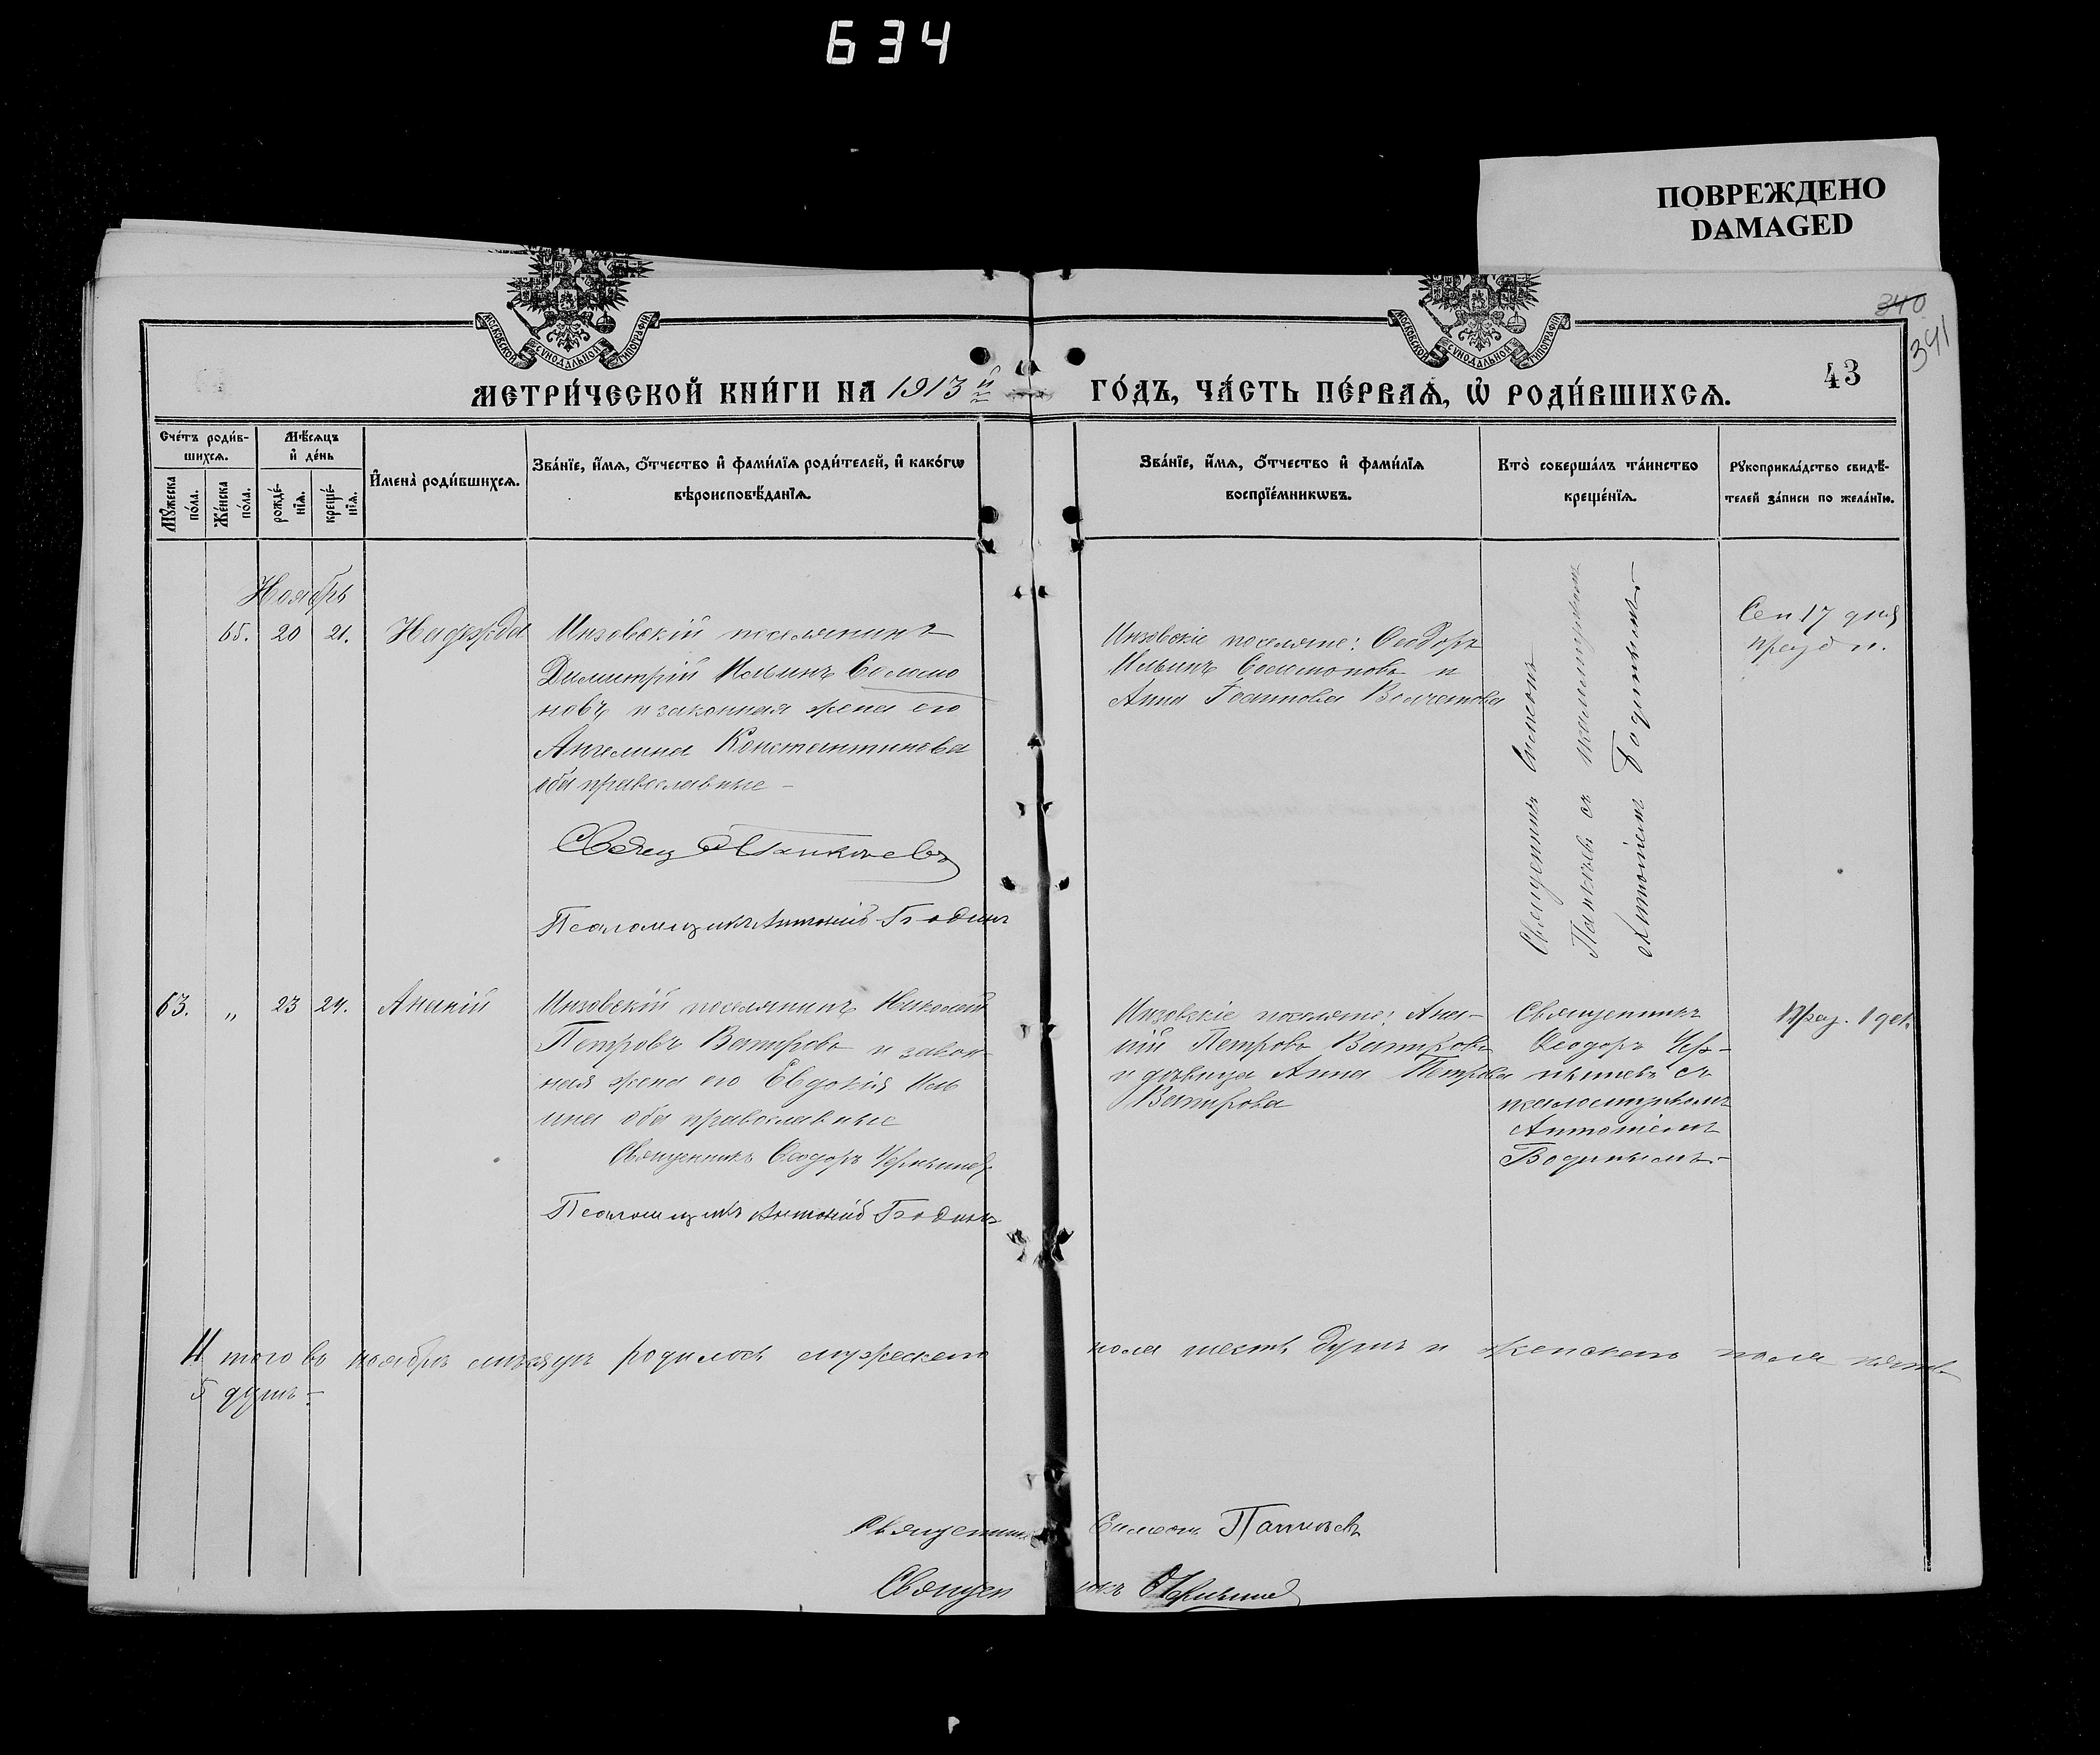 634
ПОВРЕЖДЕНО
DAMAGED
МОСКОВСКОЙ СѴНОДАЛЬНОЙ ТИПОГРАФІИ
МОСКОВСКОЙ СѴНОДАЛЬНОЙ ТИПОГРАФІИ
340
341
43
МЕТРИ́ЧЕСКОЙ КНИ́ГИ НА 1913 й
ГО́ДЪ, ЧА́СТЬ ПЕ́РВАѦ, Ѡ҆ РОДИ́ВШИХСѦ.
Сче́тъ роди́в-
шихсѧ.
Мꙋ́жеска по́ла.
Же́нска по́ла.
Мѣ́сѧцъ
и҆ де́нь
рожде́-
нїѧ.
креще́-
нїѧ.
И҆мена̀ роди́вшихсѧ.
Зва́нїе, и҆́мѧ, ѻ҆́тчество и҆ фами́лїѧ роди́телей, и҆ како́гѡ
вѣроисповѣ́данїѧ.
Зва́нїе, и҆́мѧ, ѻ҆́тчество и҆ фами́лїѧ
воспрїе́мникѡвъ.
Кто̀ соверша́лъ та́инство
креще́нїѧ.
Рꙋкоприкла́дство свидѣ́-
телей за́писи по жела́нїю.
Ноябрь
65. 20 21. Надежда
Инзовскій поселянинъ
Димитрій Ильинъ Соломо
новъ и законная жена его
Ангелина Константинова
оба православные –
Псаломщикъ Антоній Бодинъ
Инзовскіе поселяне: Ѳеодоръ
Ильинъ Соломоновъ и
Анна Іоаннова Волчанова
Священникъ Симеонъ
Панковъ съ псаломщикомъ
Антоніемъ Бодинымъ –
Сен 17 дня
63. „ 23 24. Ананій
Инзовскій поселянинъ Николай
Петровъ Ватировъ и закон-
ная жена его Евдокія Иль
ина оба православные
Священникъ Ѳеодоръ Чернышев
Псаломщикъ Антоній Бодинъ
Инзовскіе поселяне: Ана-
ній Петровъ Ватировъ
и дѣвица Анна Петрова
Ватирова
Священникъ
Ѳеодоръ Чер-
нышевъ съ
псаломщикомъ
Антоніемъ
Бодинымъ –
Итого въ ноябрѣ мѣсяцѣ родилось мужеского пола шесть душъ и женского пола пять
5 душъ –
Священникъ Симеонъ Панковъ
Священникъ Ѳ Чернышев